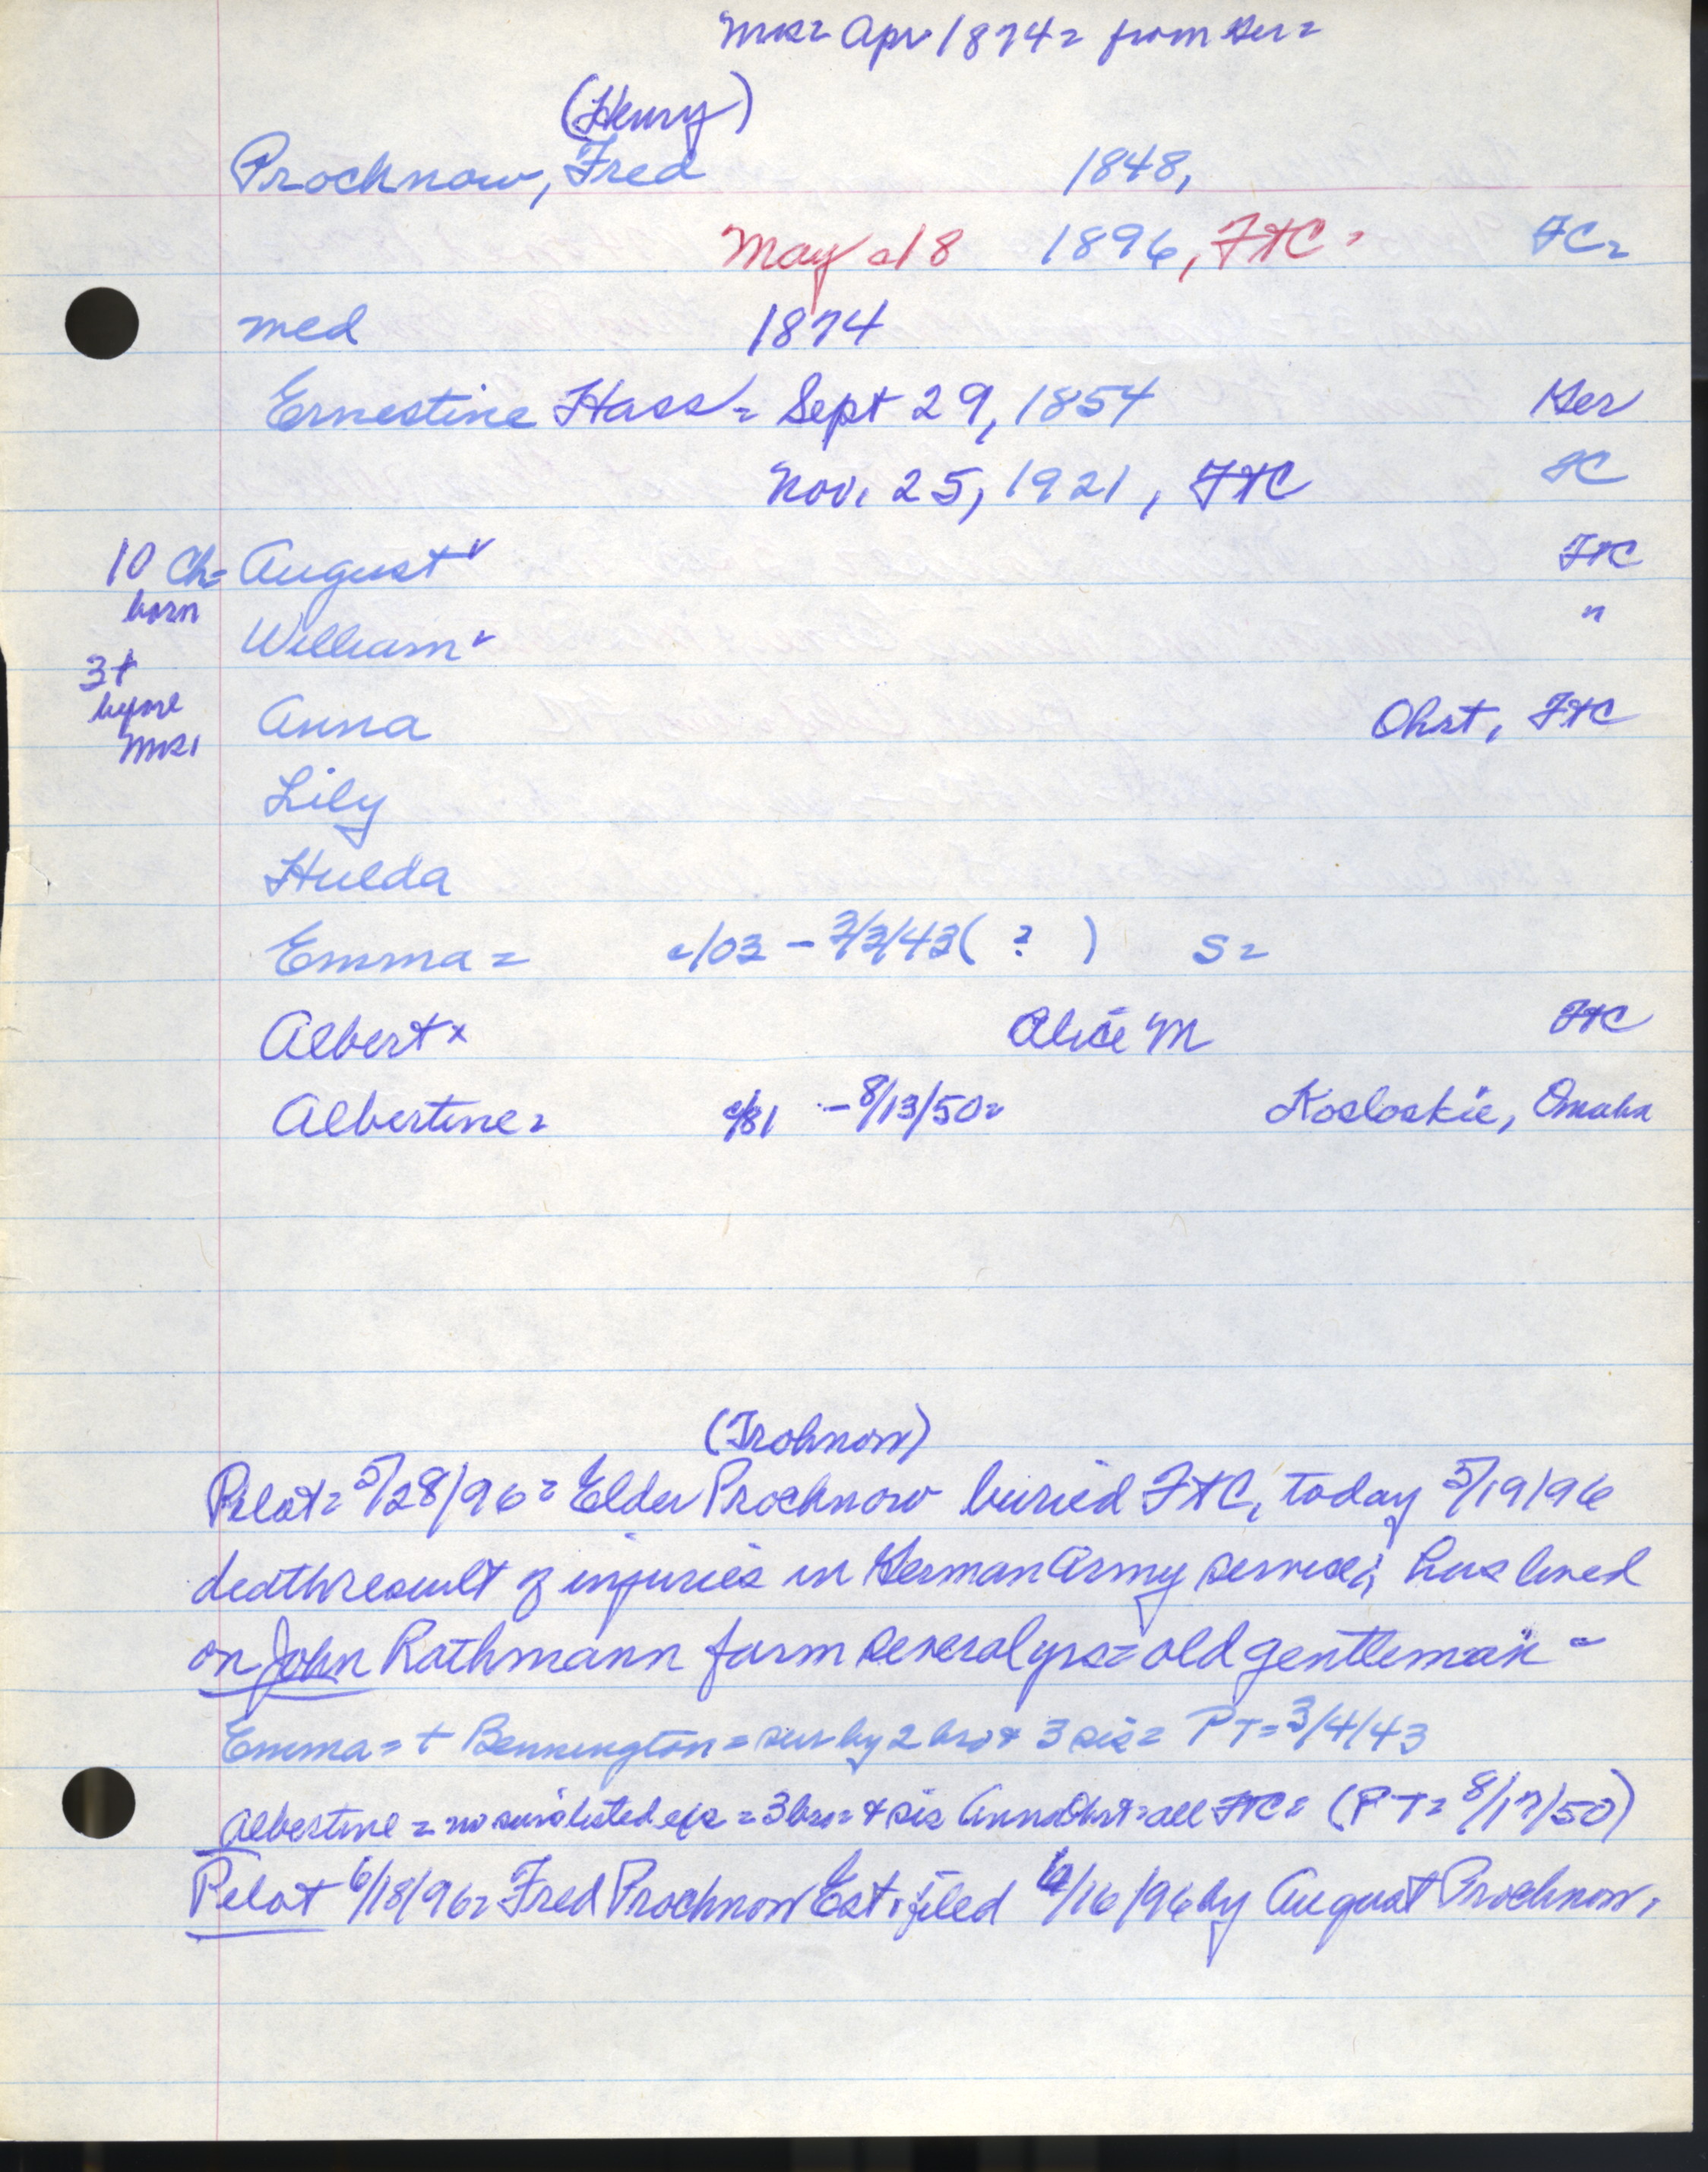 Apr 1874 = from Ger =
(Henry)
Prochnow, Fred 1848,
May 18 1896, FTC FC =
med 1874
Ernestine Hass = Sept 29, 1854 Ger
Nov. 25, 1921, FTC FC
10 Ch = August ✓ FTC
born
William ✓ "
3 +
before Anna Ohrt, FTC
Lily
Hulda
Emma = c/03 - 3/3/43 ( ? ) S =
Albert x Alice M FTC
Albertine = c/81 - 8/13/50 = Kosloskie, Omaha
(Trohnow)
Pilot = 5/28/96 = Elder Prochnow buried FTC, today 5/19/96
death result of injuries in German Army service; has lived
on John Rathmann farm several yrs = old gentleman -
Emma = + Bennington = sur by 2 bro & 3 sis = PT = 3/4/43
Albertine = no listed = 3 bro = & sis Anna Ohrt = all FTC = (PT = 8/17/50)
Pilot 6/18/96 = Fred Prochnow Est. filed 6/16/96 by August Prochnow.